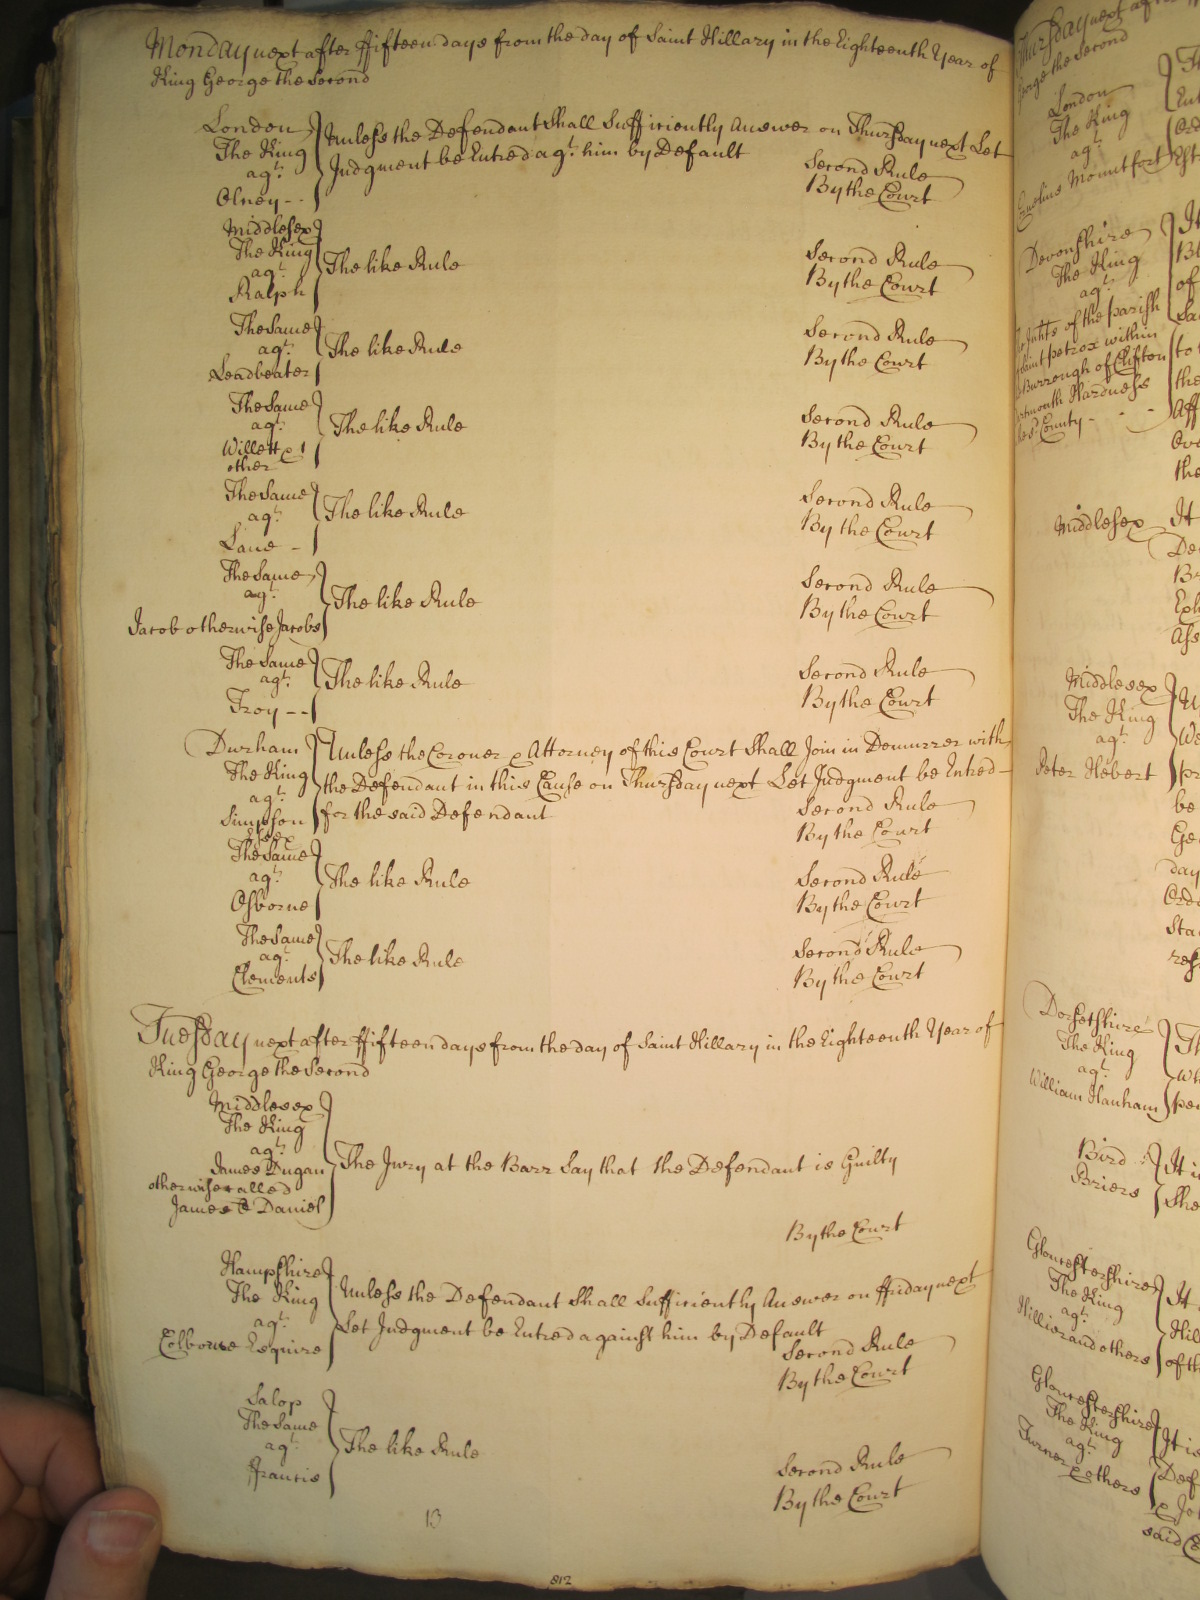 Monday next after ffifteen days from the day of Saint Hillary in the Eighteenth Year of
King George the Second
London
The King
agt.
Olney - -
Unless the Defendant Shall Sufficiently Answer on Thursday next Let
Judgment be Entred agt. him by Default
Second Rule
By the Court
Middlesex
The King
agt.
Ralph
The like Rule
Second Rule
By the Court
The Same
agt.
Leadbeater
The like Rule
Second Rule
By the Court
The Same
agt.
Willett &
other
The like Rule
Second Rule
By the Court
The Same
agt.
Lane -
The like Rule
Second Rule
By the Court
The Same
agt.
Jacob otherwise Jacobs
The like Rule
Second Rule
By the Court
The Same
agt.
Troy - -
The like Rule
Second Rule
By the Court
Durham
The King
agt.
Simpson
Unless the Coroner & Attorney of this Court Shall Join in Demurrer with
the Defendant in this Cause on Thursday next Let Judgment be Entred
for the said Defendant
Second Rule
By the Court
Essex
The Same
agt.
Osborne
The like Rule
Second Rule
By the Court
The Same
agt.
Clements
The like Rule
Second Rule
By the Court
Tuesday next after ffifteen days from the day of Saint Hillary in the Eighteenth Year of
King George the Second
Middlesex
The King
agt.
James Dugan
otherwise called
James Daniel
The Jury at the Barr Say that the Defendant is Guilty
By the Court
Hampshire
The King
agt.
Colborne Esquire
Unless the Defendant Shall Sufficiently Answer on ffriday next
Let Judgment be Entred against him by Default
Second Rule
By the Court
Salop
The Same
agt.
ffrancis
The like Rule
Second Rule
By the Court
13
812
Thursday next
George the Second
London
The King
agt.
Cornelius Mountfort
Devonshire
The King
agt.
Inhts of the parish
Saint petrox within
Burrough of Clifton
Hardness
County -
It
of
to
the
the
Middlesex
It
Middlesex
The King
agt.
Peter Hebert
be
day
Dorsetshire
The King
agt.
William Hanham
Bird
Briers
It
She
Gloucestershire
The King
agt.
Hillier and others
It
of
Gloucestershire
The King
agt.
Turner & others
It is
Def
said